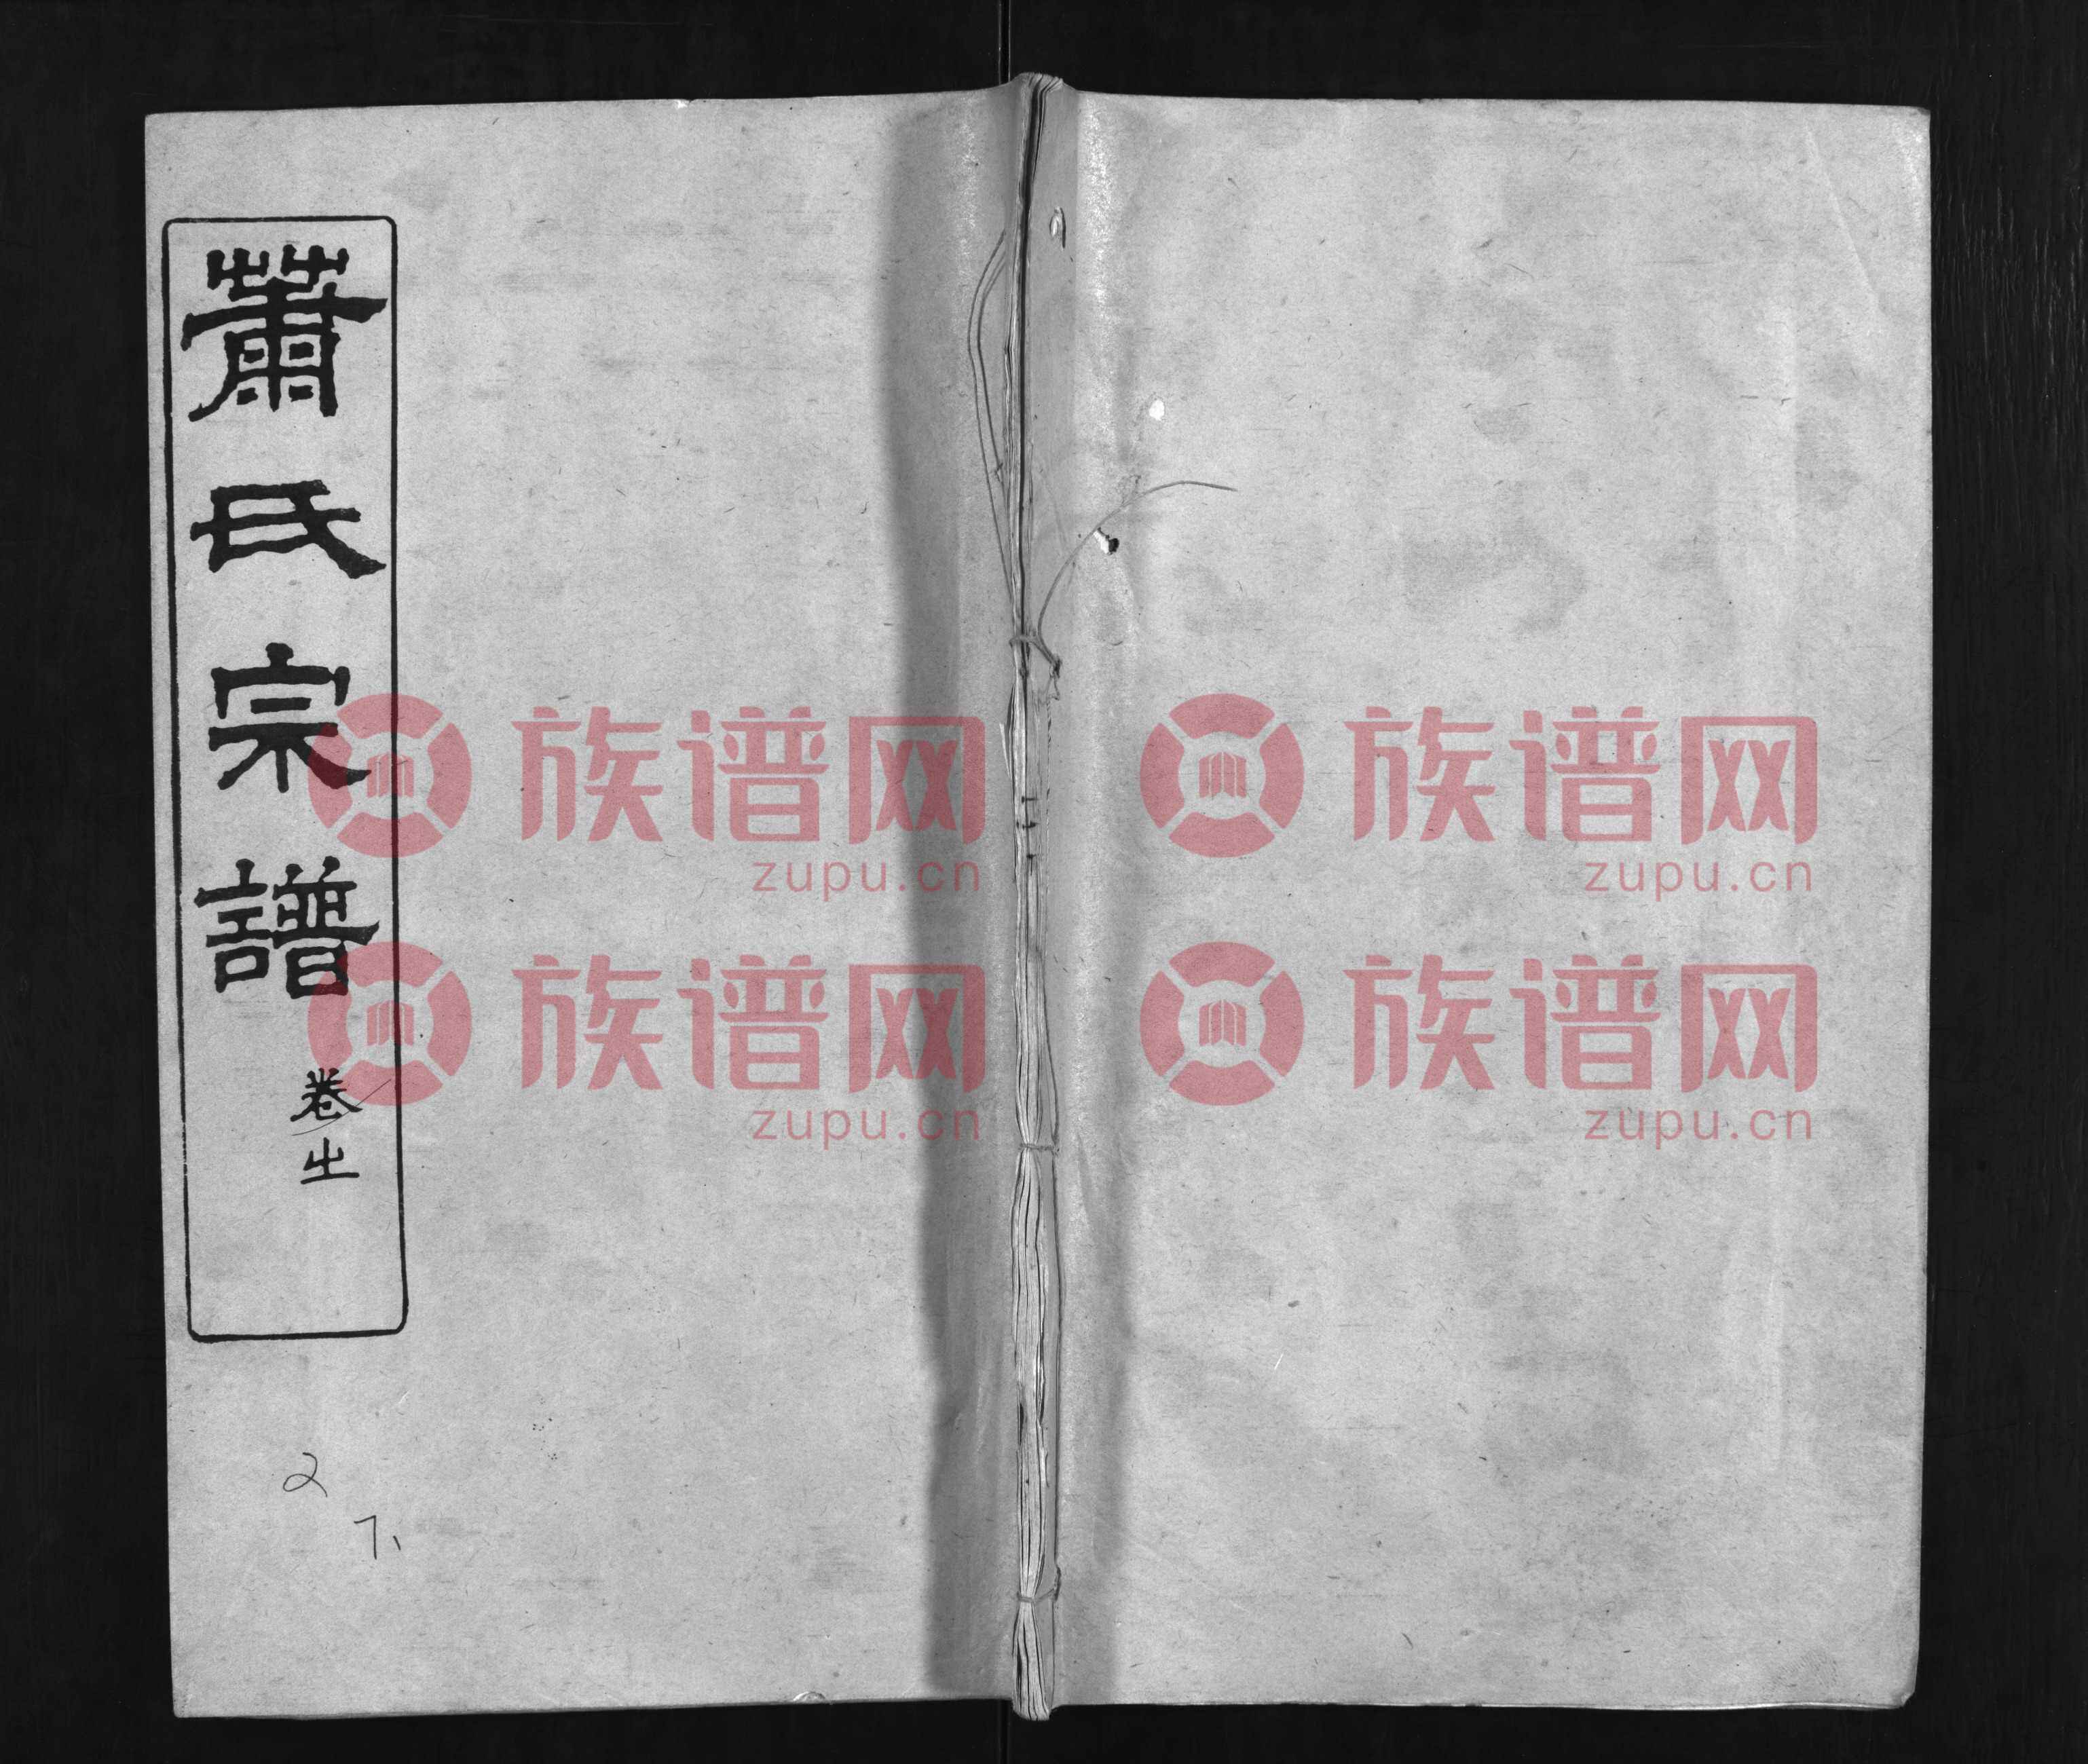 蕭氏宗譜
卷㞢
2
7、
族谱网
zupu.cn
族谱网
zupu.cn
族谱网
zupu.cn
族谱网
zupu.cn